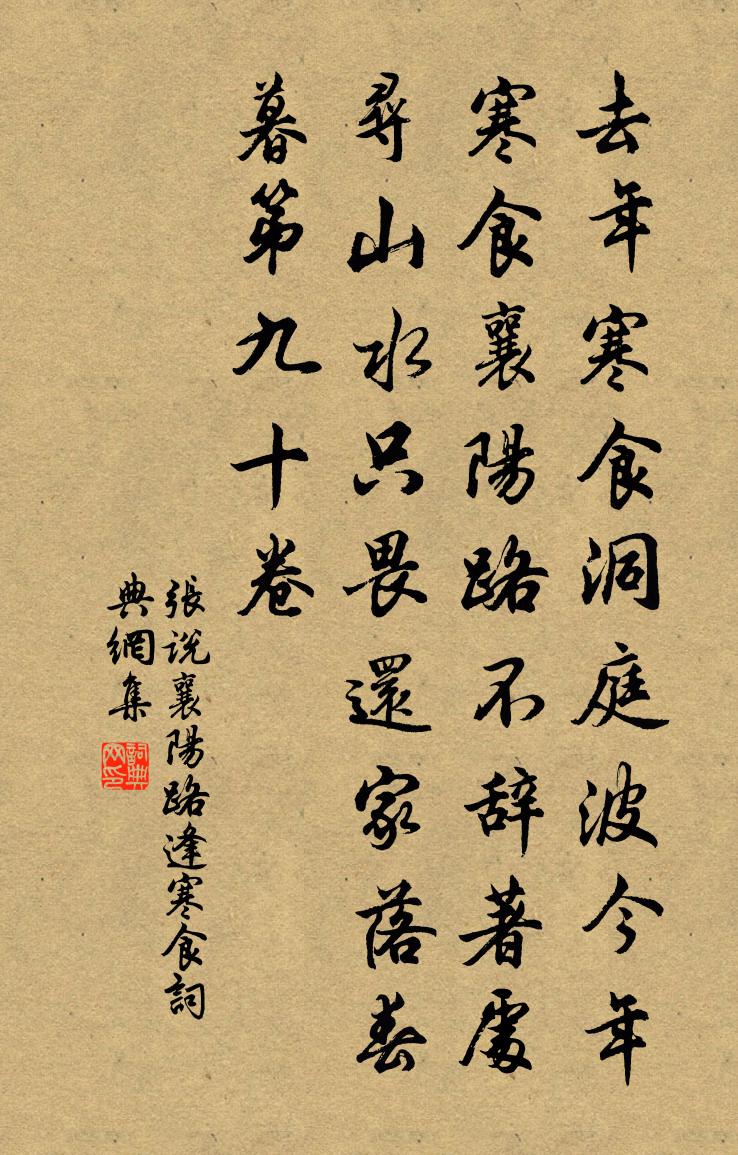 去年寒食洞庭波今年
寒食襄陽路不辞著處
尋山水只畏還家落春
暮第九十卷
張説襄陽路逢寒食詞
典網集
詞典网印